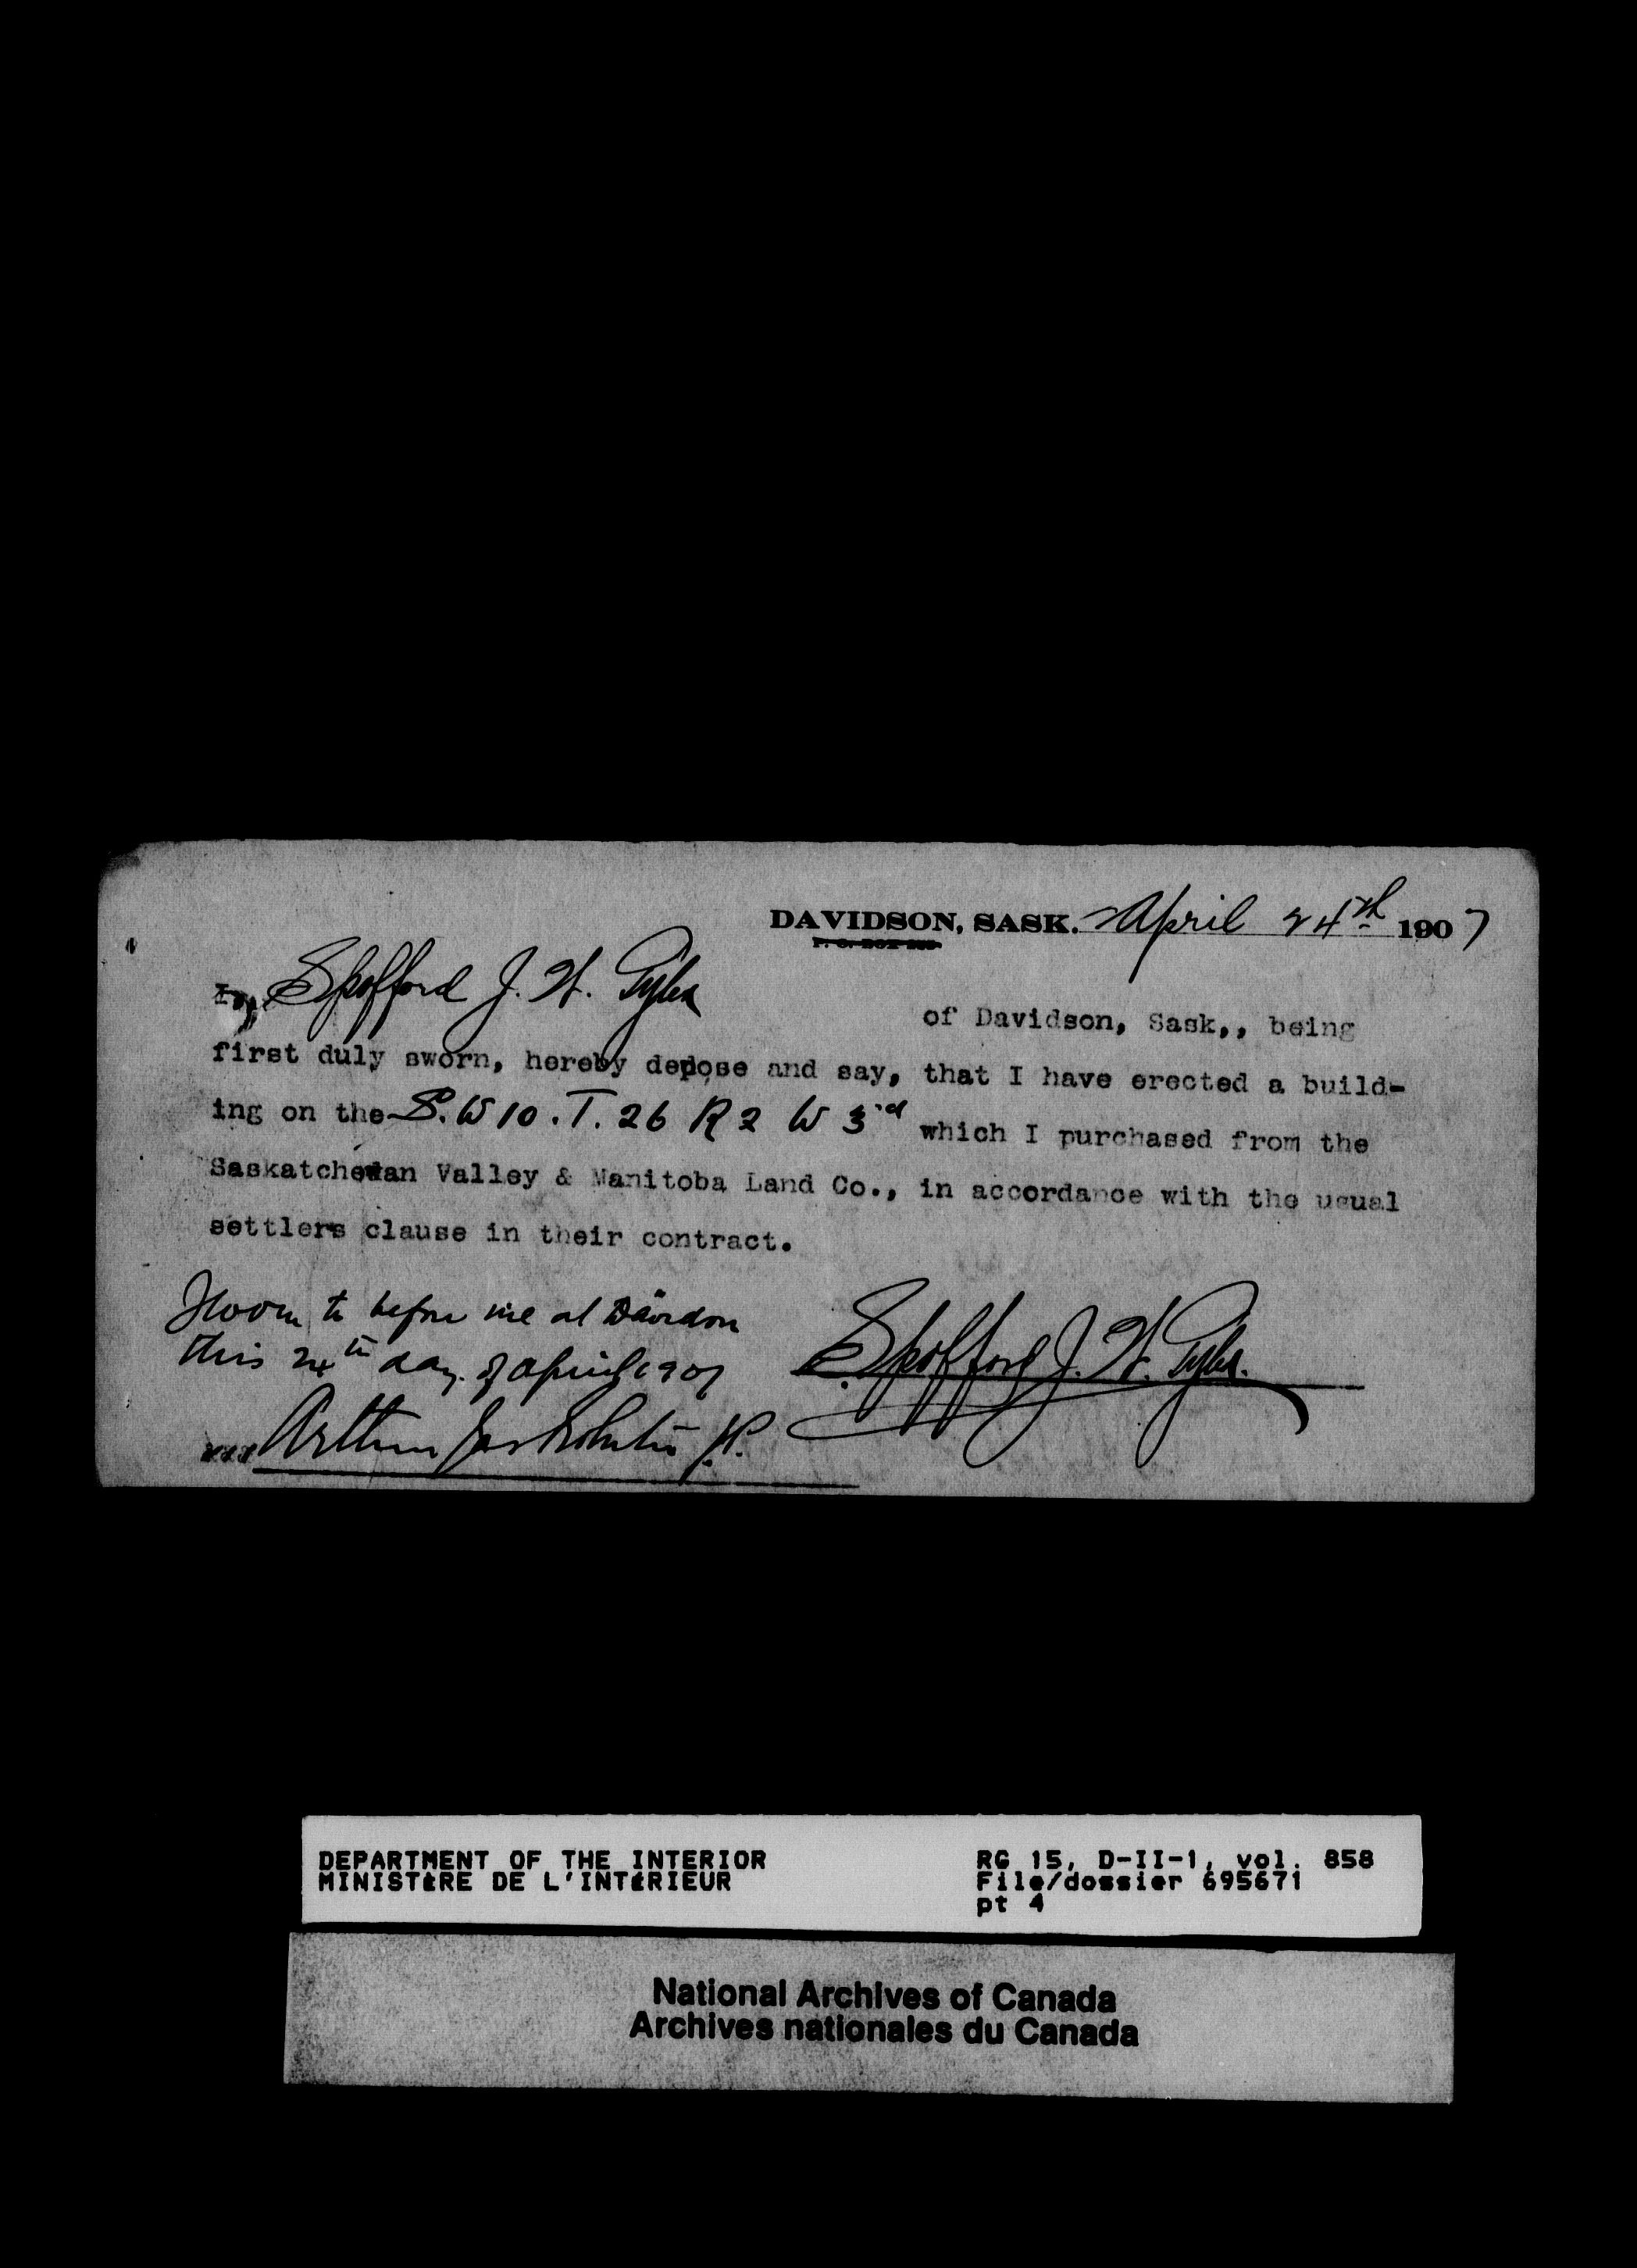 DAVIDSON, SASK. April 24th 1907
I, Spofford J. W. Tyler
of Davidson, Sask,, being
first duly sworn, hereby depose and say, that I have erected a build-
ing on the S. W 10. T. 26 R 2 W 3rd which I purchased from the
Saskatchewan Valley & Manitoba Land Co., in accordance with the usual
settlers clause in their contract.
Sworn to before me at Davidson
this 24th day of April 1907
Spofford J. W. Tyler.
Arthur J.P.
DEPARTMENT OF THE INTERIOR
MINISTÈRE DE L'INTÉRIEUR
RG 15, D-II-1, vol. 858
File/dossier 695671
pt 4
National Archives of Canada
Archives nationales du Canada